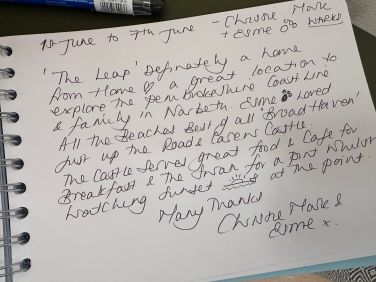 1st June to 7th June - Christie Mark
+ Esme
'The Leap' Definately a home
from Home & a great location to
explore the Pembrokeshire Coast Line
& family in Narbeth. Esme loved
All the Beaches Best of all 'Broad Haven'
Just up the Road & Castle.
The Castle Serves great food & Cafe for
Breakfast & the Swan for a Pint whilst
watching Sunset at the point.
Many Thanks
Christie Mark &
Esme x.